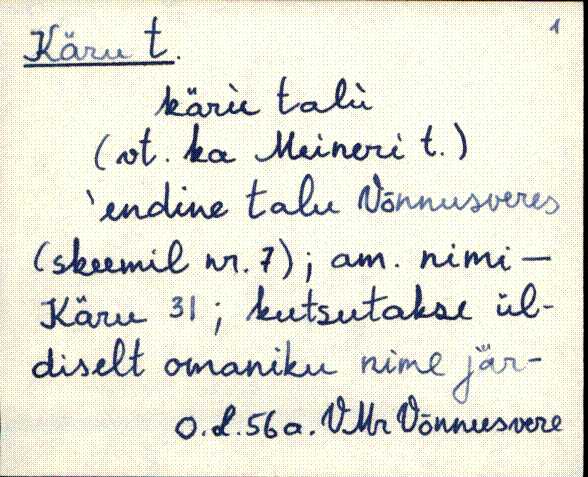 1
Käru t.
kärù talù
(vt. ka Meineri t.)
'endine talu Võnnusveres
(skeemil nr. 7); am. nimi —
Käru 31; kutsutakse ül-
diselt omaniku nime jär-
O.L.56a. VMr Võnnusvere